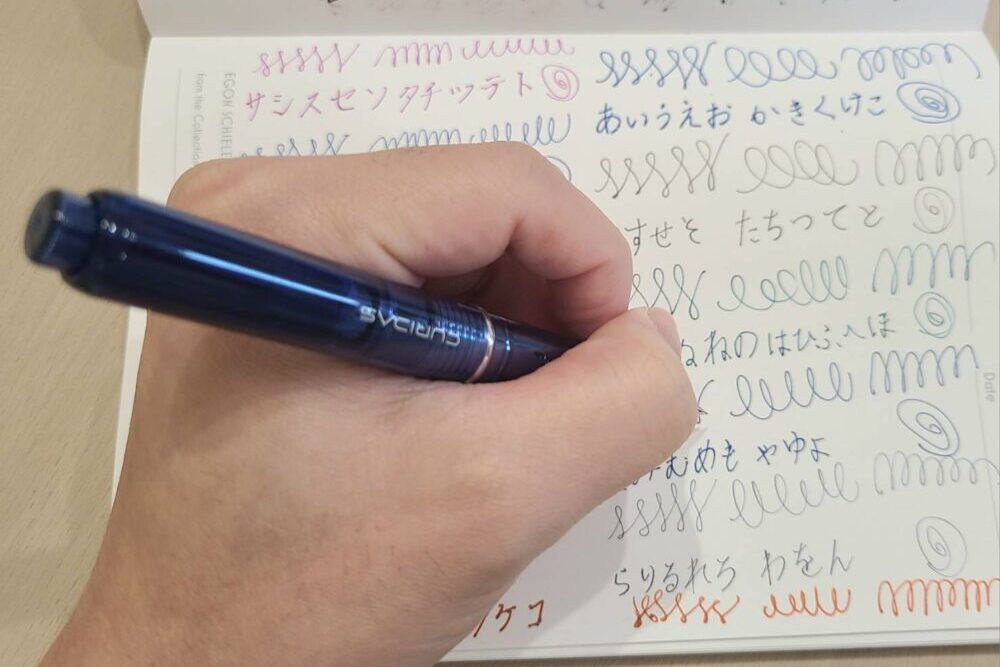 EGON SCHIELE
from the Collection
サシスセソ タチツテト
あいうえお かきくけこ
すせそ たちつてと
CURIDAS
ねのはひふへほ
Date
むめも やゆよ
らりるれろ わをん
ケコ